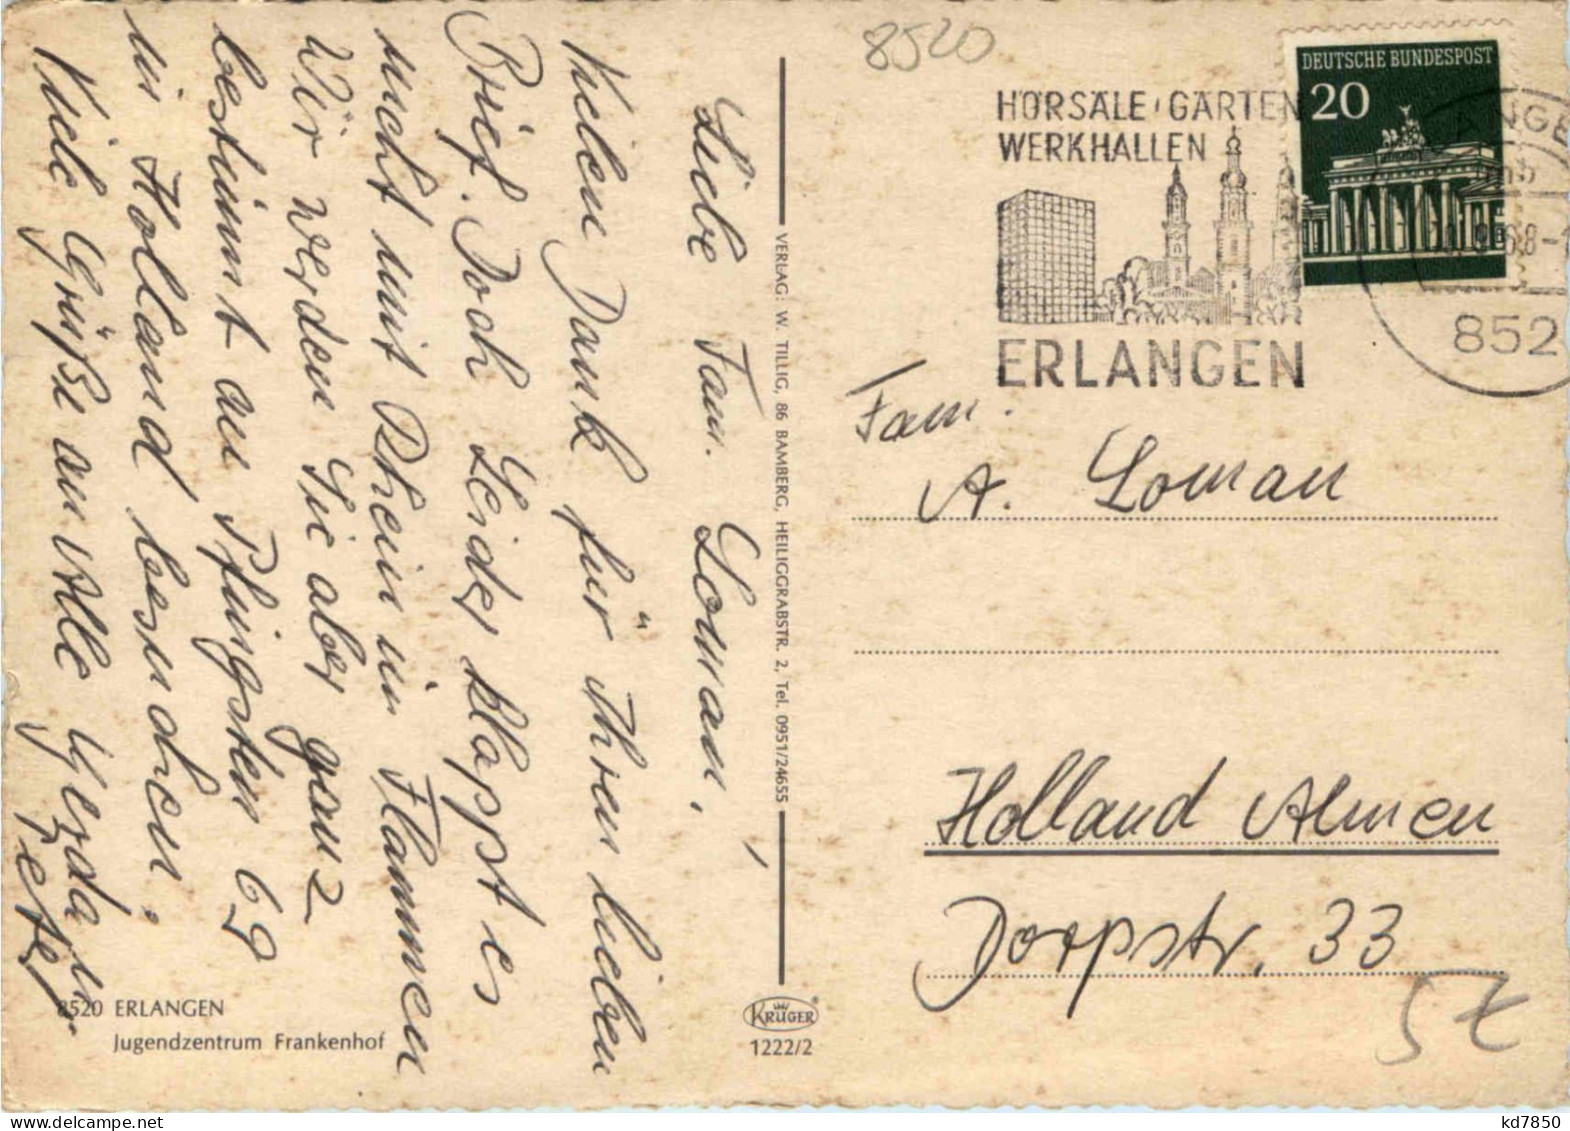 8520
HÖRSÄLE · GÄRTEN
WERKHALLEN
ERLANGEN
DEUTSCHE BUNDESPOST
20
852
Liebe Fam. Loman,
Vielen Dank für Ihren lieben
Brief. Doch Leider klappt es
nicht mit Rhein in Flammen
Wir werden Sie aber ganz
bestimmt an Pfingsten 69
in Holland besuchen.
Viele Grüße an Alle Gerda u.
Peter
Fam.
A. Loman
Holland Almen
Dorpstr. 33
VERLAG: W. TILLIG, 86 BAMBERG, HEILIGGRABSTR. 2, Tel. 0951/24655
8520 ERLANGEN
Jugendzentrum Frankenhof
KRÜGER
1222/2
kd7850
www.delcampe.net